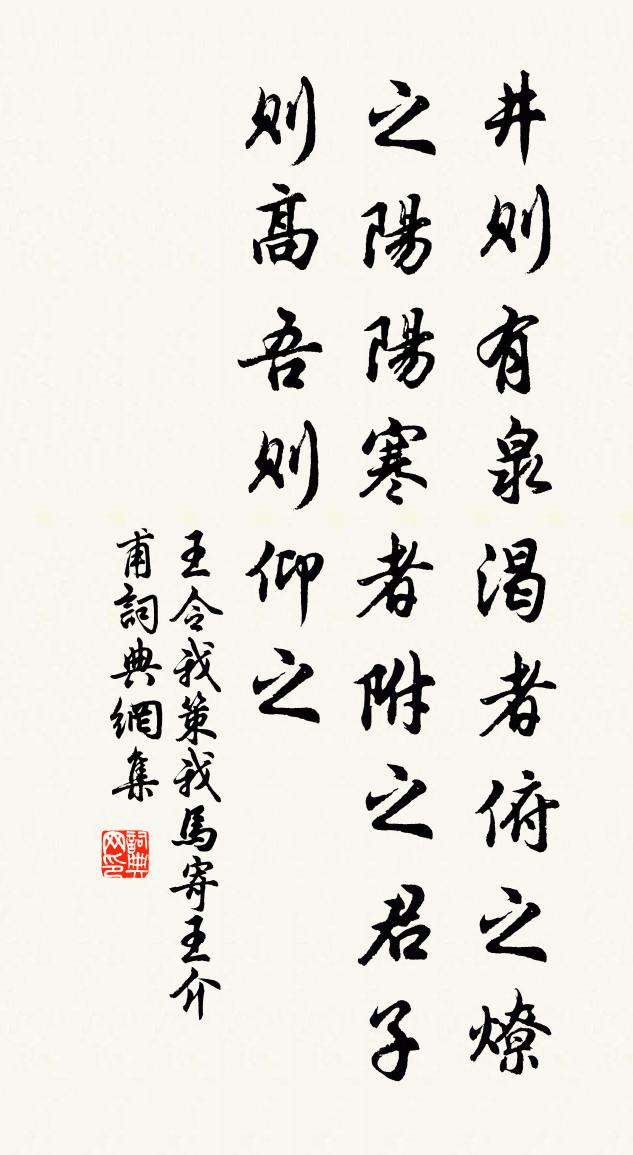 井則有泉渴者俯之燎
之陽陽寒者附之君子
則高吾則仰之
王令我策我馬寄王介
甫詞典網集
詞典网印